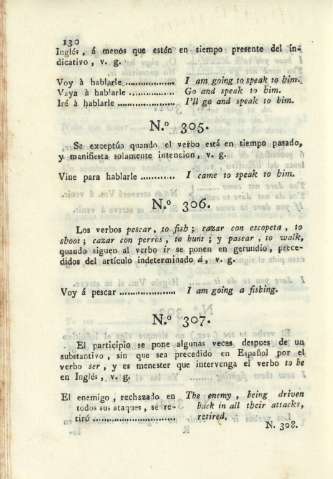 130
Inglés, á menos que estén en tiempo presente del in-
dicativo, v. g.
Voy à hablarle .................. I am going to speak to him.
Vaya à hablarle .................. Go and speak to him.
Irá à hablarle .................. I'll go and speak to him.
N.º 305.
Se exceptúo quando el verbo está en tiempo pasado,
y manifiesta solamente intencion, v. g.
Vine para hablarle ............ I came to speak to him.
N.º 306.
Los verbos pescar, to fish; cazar con escopeta, to
shoot; cazar con perros, to hunt; y pasear, to walk,
quando siguen al verbo ir se ponen en gerundio, prece-
didos del artículo indeterminado á, v. g.
Voy á pescar .................. I am going a fishing.
N.º 307.
El participio se pone algunas veces despues de un
substantivo, sin que sea precedido en Español por el
verbo ser, y es menester que intervenga el verbo to be
en Inglés, v. g.
El enemigo, rechazado en The enemy, being driven
todos sus ataques, se re- back in all their attacks,
tiró .................. retired.
N. 308.